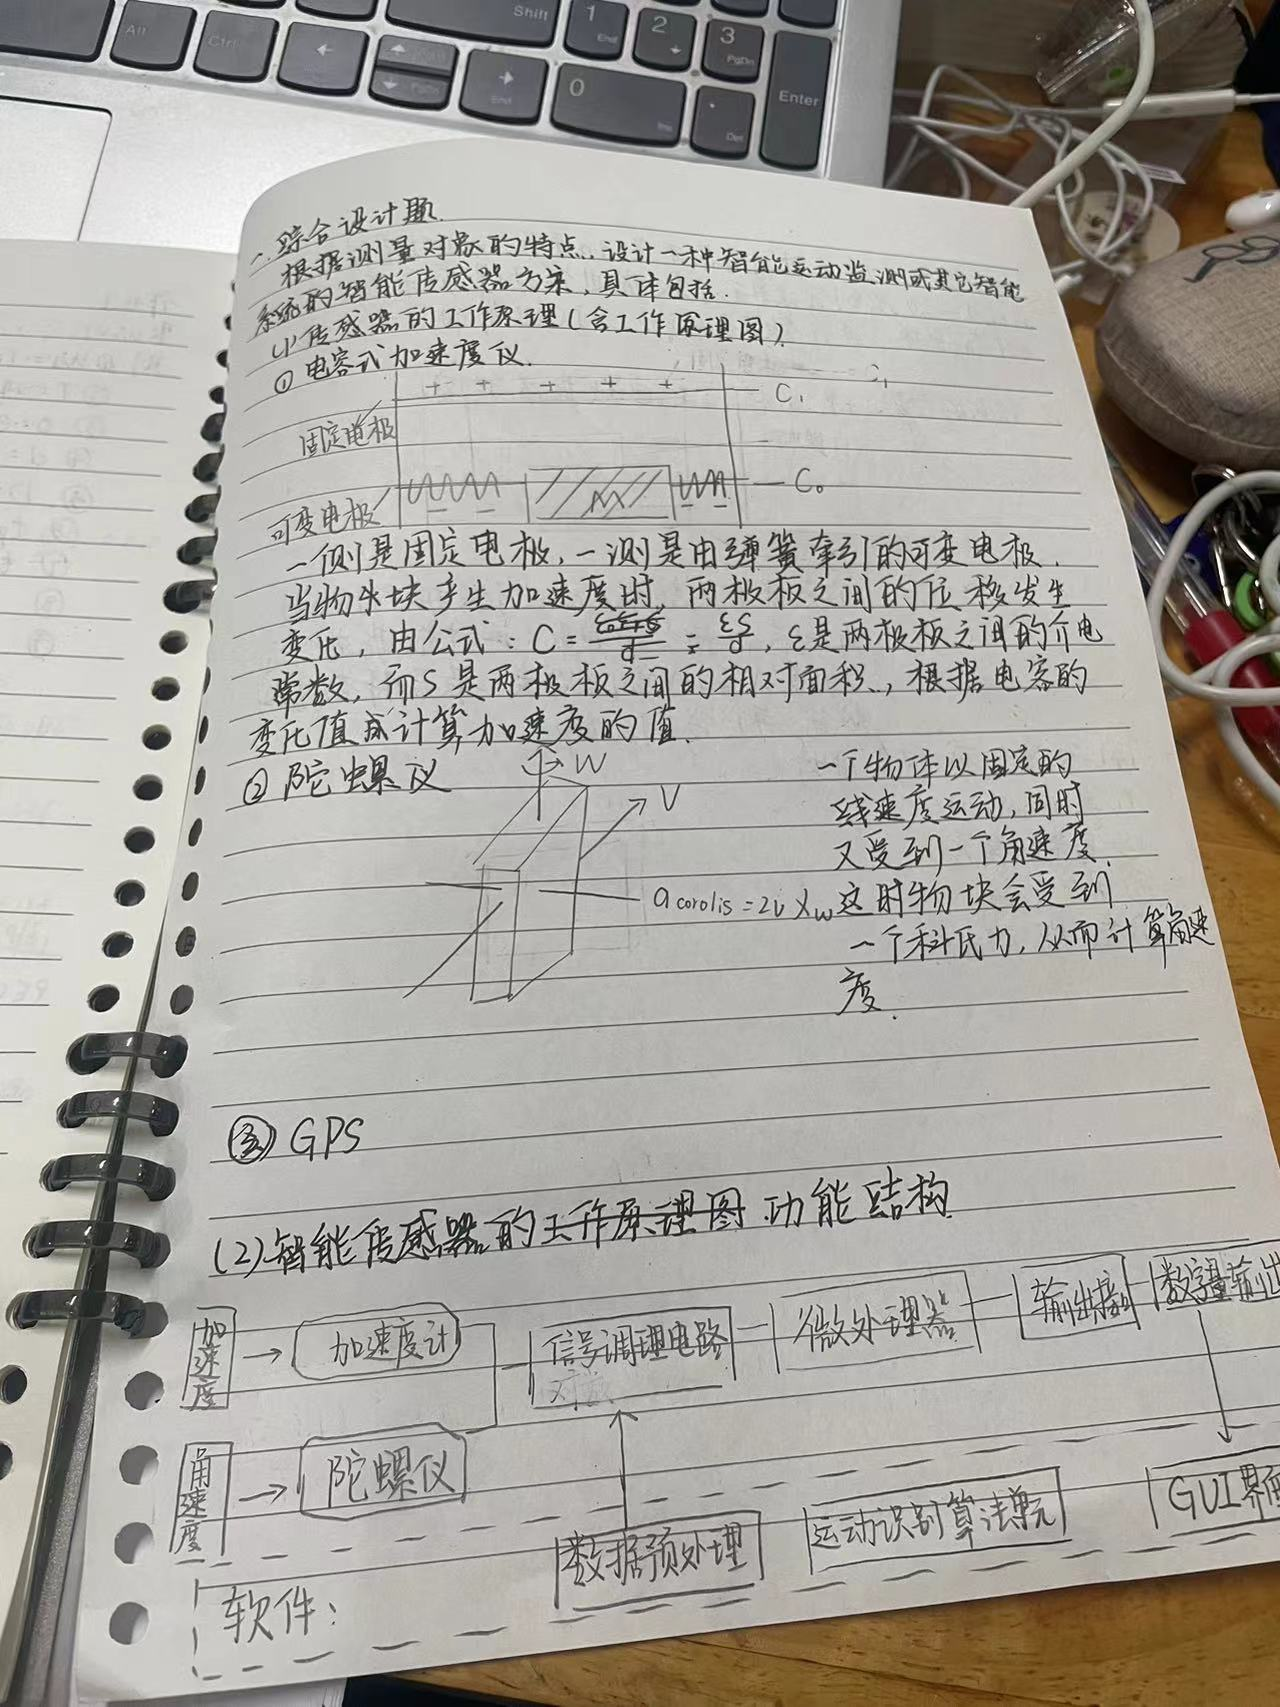 Shift
Alt
Ctrl
1
End
2
3
PgDn
End
0
Ins
.
Del
Enter
一、综合设计题.
根据测量对象的特点,设计一种智能运动监测或其它智能
系统的智能传感器方案,具体包括.
(1)传感器的工作原理(含工作原理图)
① 电容式加速度仪.
+ + + + +
C₁
固定电极
M
C₀
可变电极
一侧是固定电极,一测是由弹簧牵引的可变电极.
当物块产生加速度时,两极板之间的位移发生
变化,由公式:C= = εS/d,ε是两极板之间的介电
常数,而S是两极板之间的相对面积,根据电容的
变化值来计算加速度的值.
② 陀螺仪
W
V
a corolis = 2V×w
一个物体以固定的
线速度运动,同时
又受到一个角速度.
这时物块会受到
一个科氏力,从而计算角速
度.
③ GPS
(2)智能传感器的工作原理图 功能结构
加速度
加速度计
信号调理电路
微处理器
输出接口
数字量输出
角速度
陀螺仪
数据预处理
运动识别算法单元
GUI界面
软件: